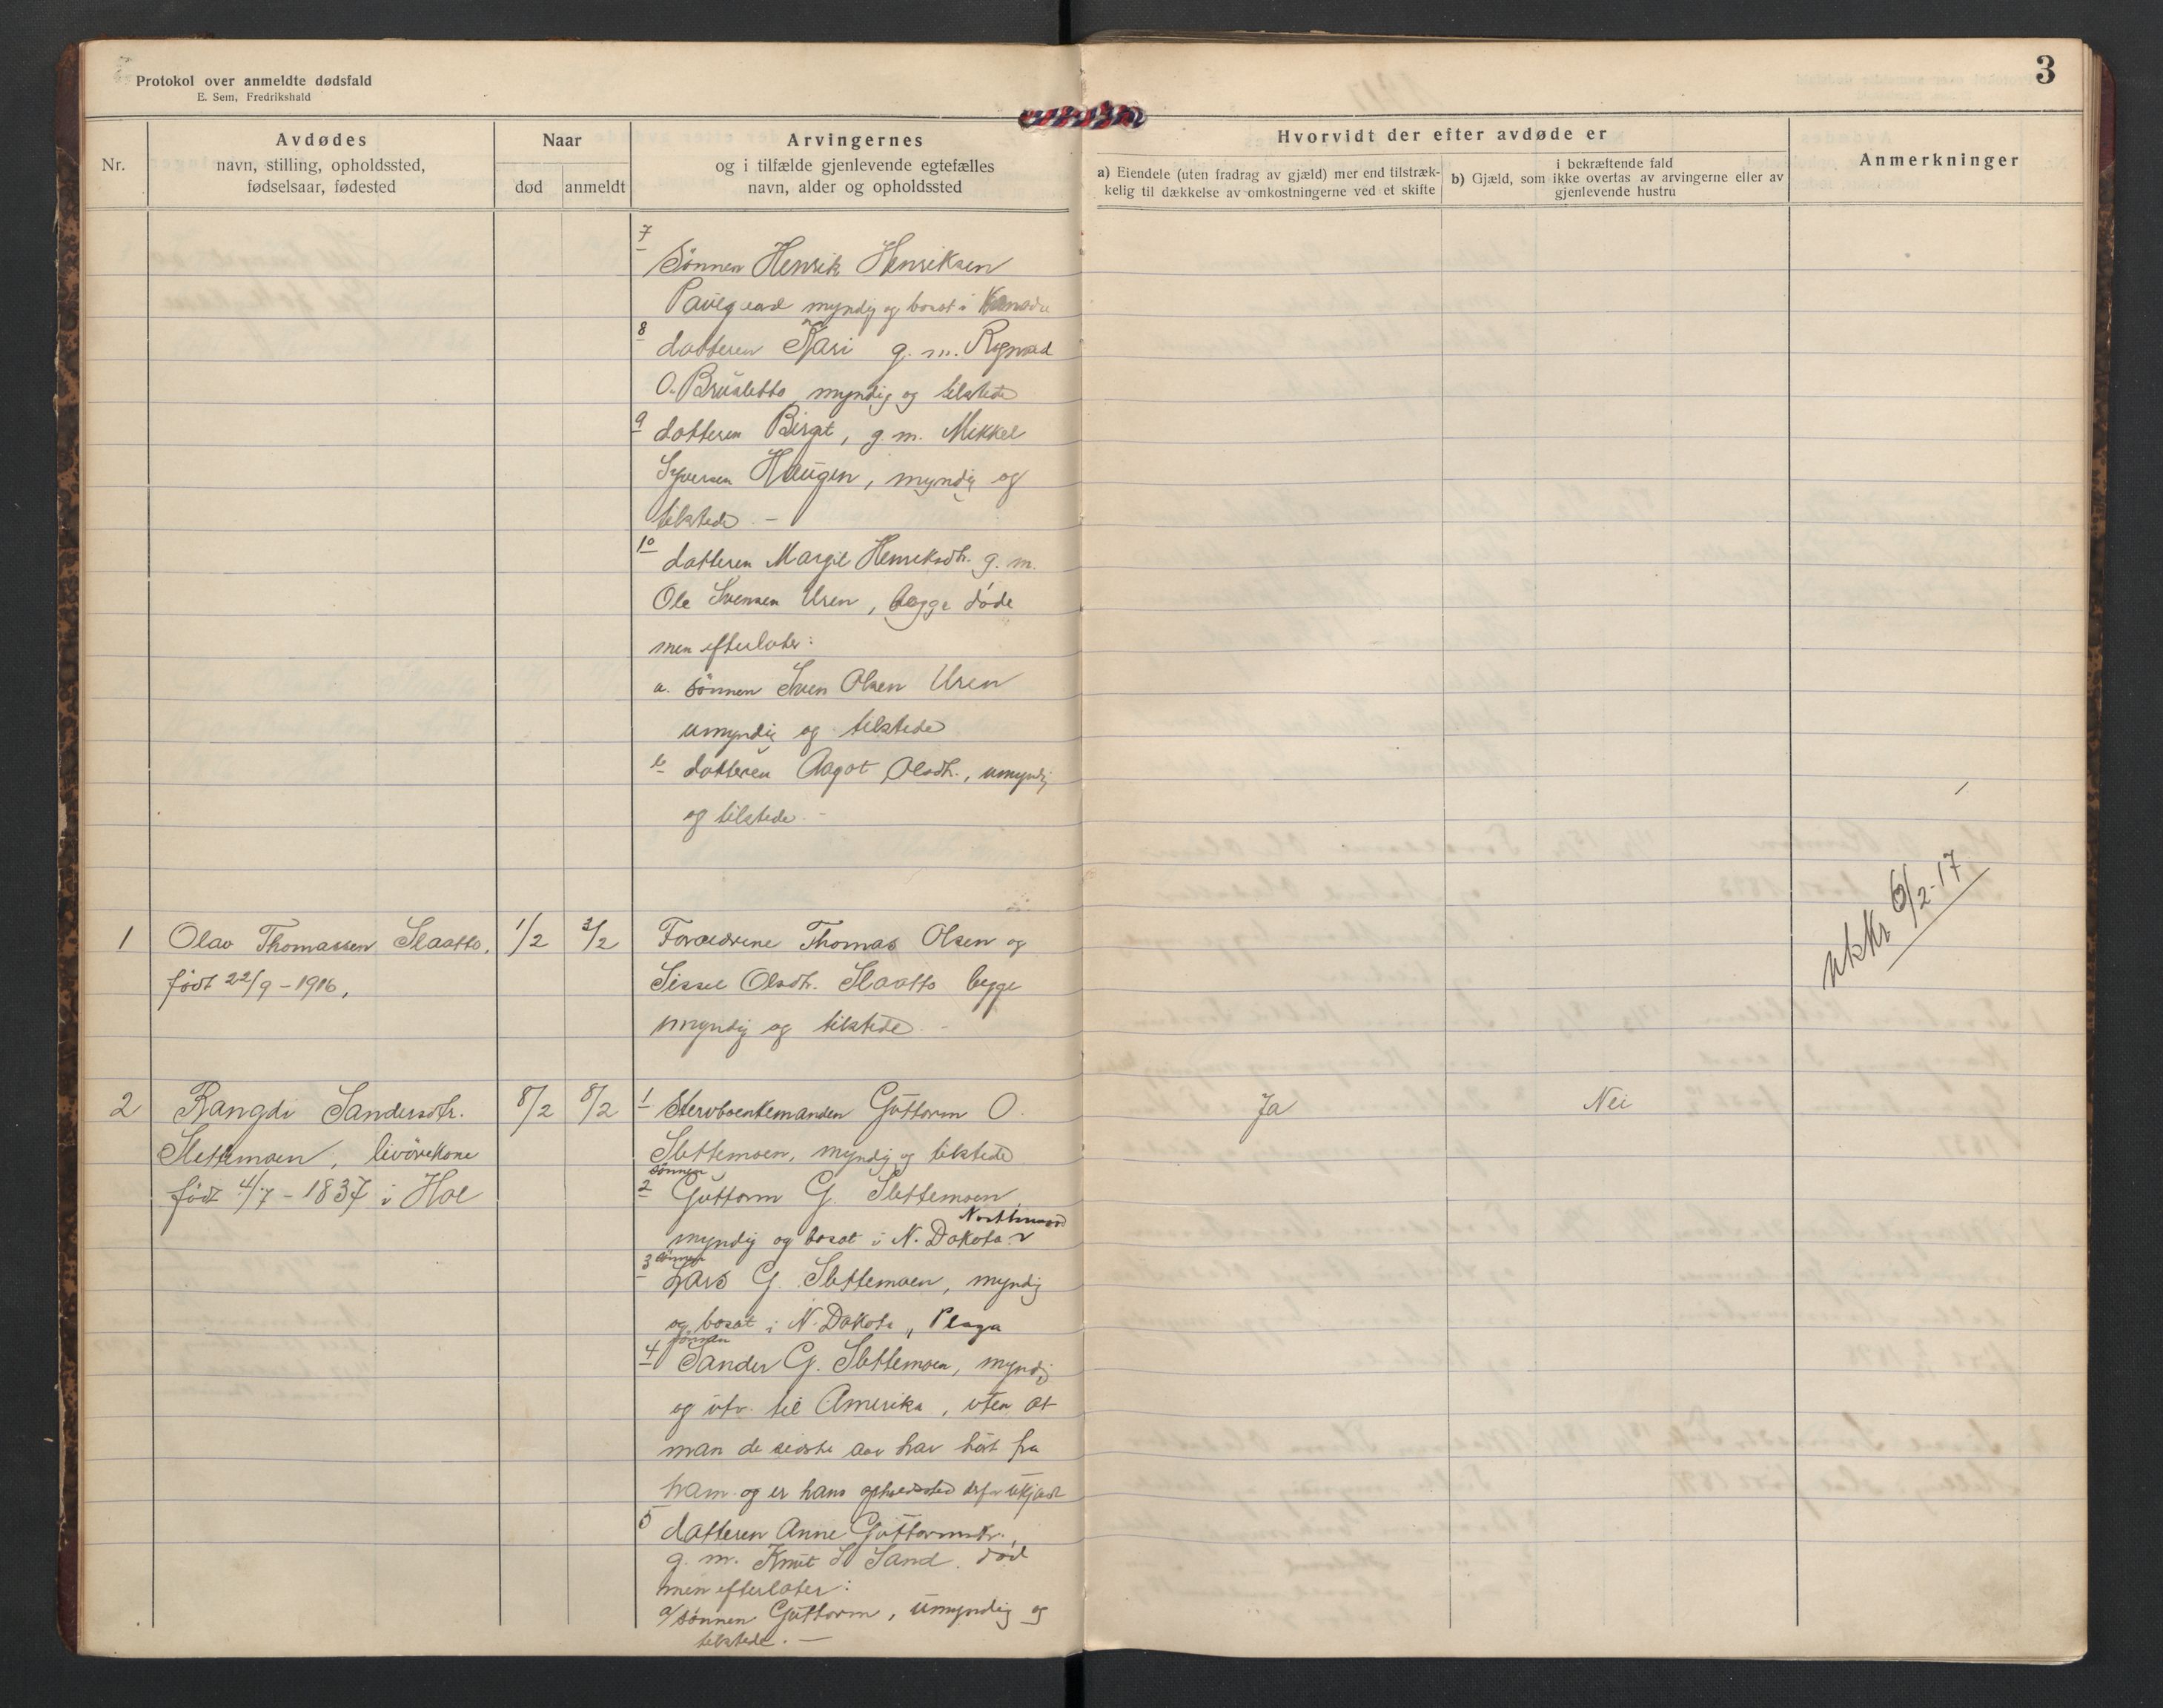 Protokol over anmeldte dødsfald
E. Sem, Fredrikshald
3
Nr.
Avdødes
navn, stilling, opholdssted,
fødselsaar, fødested
Naar
død
anmeldt
Arvingernes
og i tilfælde gjenlevende egtefælles
navn, alder og opholdssted
Hvorvidt der efter avdøde er
a) Eiendele (uten fradrag av gjæld) mer end tilstræk-
kelig til dækkelse av omkostningerne ved et skifte
i bekræftende fald
b) Gjæld, som ikke overtas av arvingerne eller av
gjenlevende hustru
Anmerkninger
7
Sønnen Henrik Henriksen
myndig og bosat i Kanada
8 datteren Kari g. m.
O. Brusletto, myndig og tilstede
9 datteren Birgit, g. m. Mikkel
Syversen Haugen, myndig og
tilstede. –
10 datteren Margit Henriksdtr. g. m.
Ole Svensen Uren, begge døde
men efterlater:
a. sønnen Sven Olsen Uren
umyndig og tilstede
b datteren Aagot Olsdtr., umyndig
og tilstede. –
1 Olav Thomassen Slaatto, 1/2 3/2 Forældrene Thomas Olsen og
født 22/9 – 1916, Sissel Olsdtr. Slaatto begge
myndig og tilstede –
6/2-17
2 Rangdi Sandersdtr. 8/2 8/2 1 Stervboenkemanden Guttorm O. Ja Nei
Slettemoen, livørekone Slettemoen, myndig og tilstede
født 4/7 – 1837 i Hol
sønnen
2 Guttorm G. Slettemoen
Northwood
myndig og bosat i N. Dakota
sønnen
3 Lars G. Slettemoen, myndig
og bosat i N. Dakota, Plaza
sønnen
4 Sander G. Slettemoen, myndig
og utv. til Amerika, uten at
man de sidste aar har hørt fra
ham og er hans opholdssted derfor ukjent
5 datteren Anne Guttormsdtr.
g. m. Knut Sand. død
men efterlater:
a/ sønnen Guttorm, umyndig og
tilstede. –